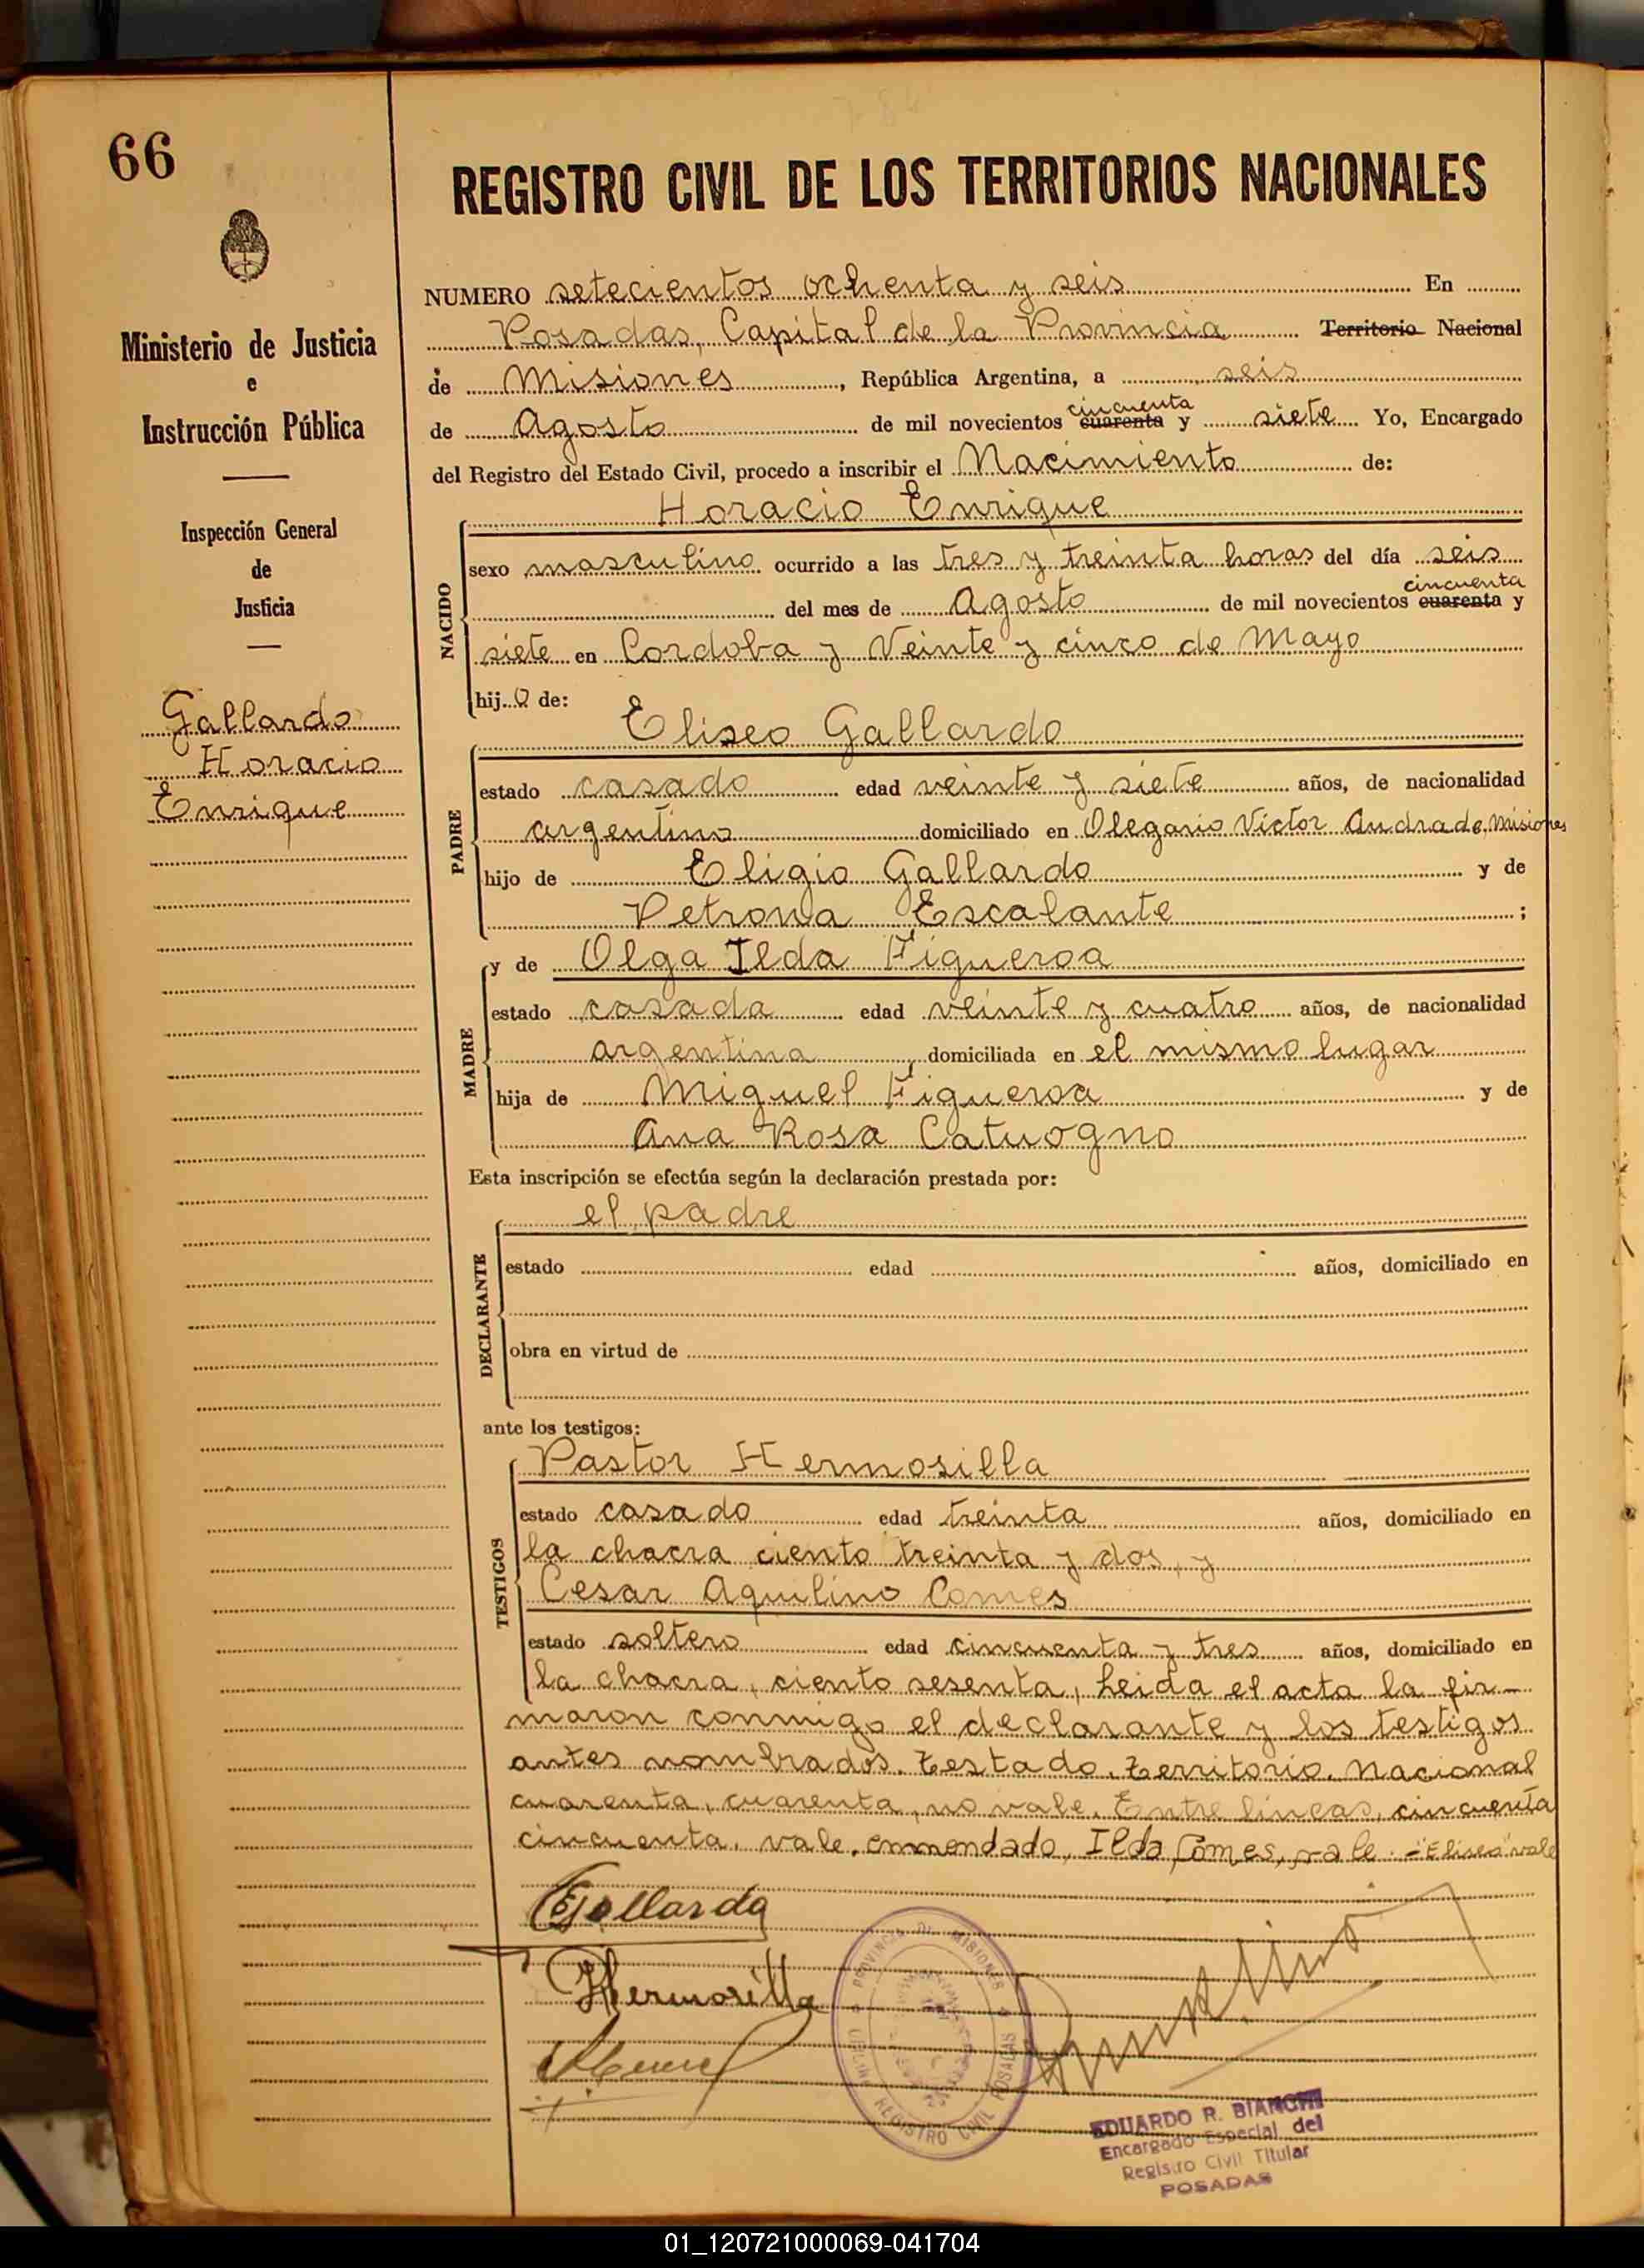 66
REGISTRO CIVIL DE LOS TERRITORIOS NACIONALES
Ministerio de Justicia
e
Instrucción Pública
Inspección General
de
Justicia
Gallardo
Horacio
Enrique
NUMERO setecientos ochenta y seis En
Posadas, Capital de la Provincia Territorio Nacional
de Misiones, República Argentina, a seis
cincuenta
de Agosto de mil novecientos cuarenta y siete Yo, Encargado
del Registro del Estado Civil, procedo a inscribir el Nacimiento de:
Horacio Enrique
NACIDO
sexo masculino ocurrido a las tres y treinta horas del día seis
cincuenta
del mes de Agosto de mil novecientos cuarenta y
siete en Cordoba y Veinte y cinco de Mayo
hijo de:
Eliseo Gallardo
PADRE
estado casado edad veinte y siete años, de nacionalidad
argentino domiciliado en Olegario Victor Andrade, Misiones
hijo de Eligio Gallardo y de
Petrona Escalante ;
y de Olga Ilda Figueroa
MADRE
estado casada edad veinte y cuatro años, de nacionalidad
argentina, domiciliada en el mismo lugar
hija de Miguel Figueroa y de
Ana Rosa Catuogno
Esta inscripción se efectúa según la declaración prestada por:
el padre
DECLARANTE
estado edad años, domiciliado en
obra en virtud de
ante los testigos:
Pastor Hermosilla
TESTIGOS
estado casado edad treinta años, domiciliado en
la chacra ciento treinta y dos, y
Cesar Aquilino Comes
estado soltero edad cincuenta y tres años, domiciliado en
la chacra, ciento sesenta, Leida el acta la fir-
maron conmigo el declarante y los testigos
antes nombrados. Testado. Territorio. Nacional
cuarenta, cuarenta, no vale. Entre lineas, cincuenta
cincuenta. vale. enmendado, Ilda, Comes, vale. - "Eliseo" vale
EGallardo
PHermosilla
PROVINCIA DE MISIONES
REGISTRO CIVIL POSADAS
EDUARDO R. BIANCHI
Encargado Especial del
Registro Civil Titular
POSADAS
01_120721000069-041704